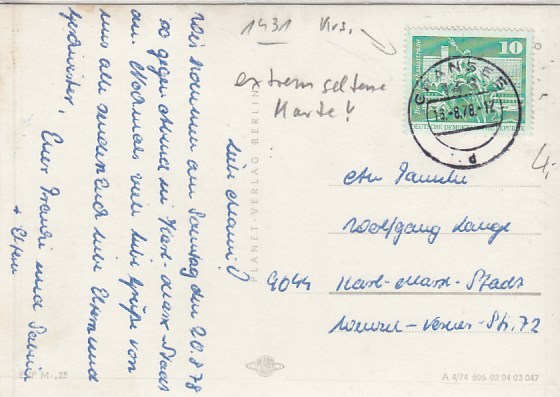 1431 Krs.
extrem seltene
Karte!
4,-
10
DEUTSCHE DEMOKRATISCHE REPUBLIK
GRANSEE
15.-8.78-21
d
Liebe Mami!
Wir kommen am Sonntag den 20.8.78
so gegen abend in Karl-Marx-Stadt
an. Nochmals viele liebe Grüße von
uns an
Eltern und
Geschwister,
Eure
und
+ Eltern
An Familie
Wolfgang Lange
9044 Karl-Marx-Stadt
Wenzel-Verner-Str. 72
PLANET-VERLAG BERLIN
EVP M -,25
A 4/74 606 02 04 03 047